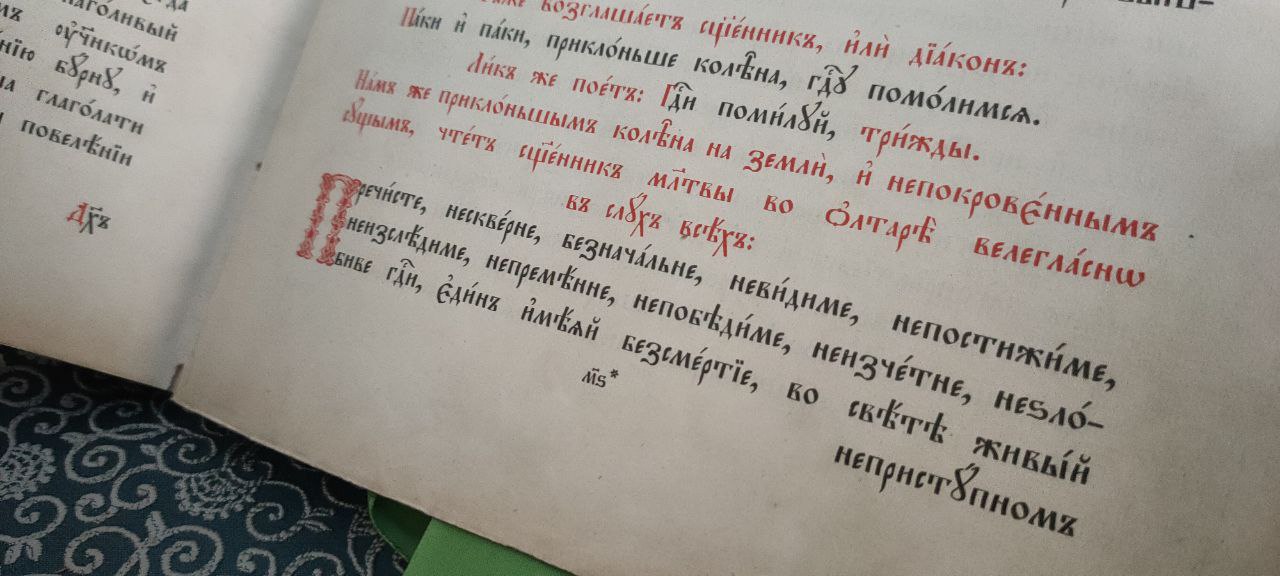 глаго́ливый
ᲂу҆ч҃нкѡ́мъ
бꙋ́рнꙋ, и҆
глаго́лати
повелѣ́нїи
Дх҃ъ
возглаша́етъ сщ҃е́нникъ, и҆лѝ дїа́конъ:
Па́ки и҆ па́ки, прикло́ньше колѣ̑на, гдⷭ҇ꙋ помо́лимсѧ.
Ли́къ же пое́тъ: Гдⷭ҇и поми́лꙋй, три́жды.
На́мъ же прикло́ньшымъ колѣ̑на на землѝ, и҆ непокровє́ннымъ
сꙋ́щымъ, чте́тъ сщ҃е́нникъ мл҃твы во ѻ҆лтарѣ̀ велегла́снѡ
въ слꙋ́хъ всѣ́хъ:
Пречи́сте, нескве́рне, безнача́льне, неви́диме, непостижи́ме,
неизслѣ́диме, непремѣ́нне, непобѣди́ме, неизче́тне, неѕло́-
биве гдⷭ҇и, є҆ди́нъ и҆мѣ́ѧй безсме́ртїе, во свѣ́тѣ живы́й
непристꙋ́пномъ
м҃ѕ*